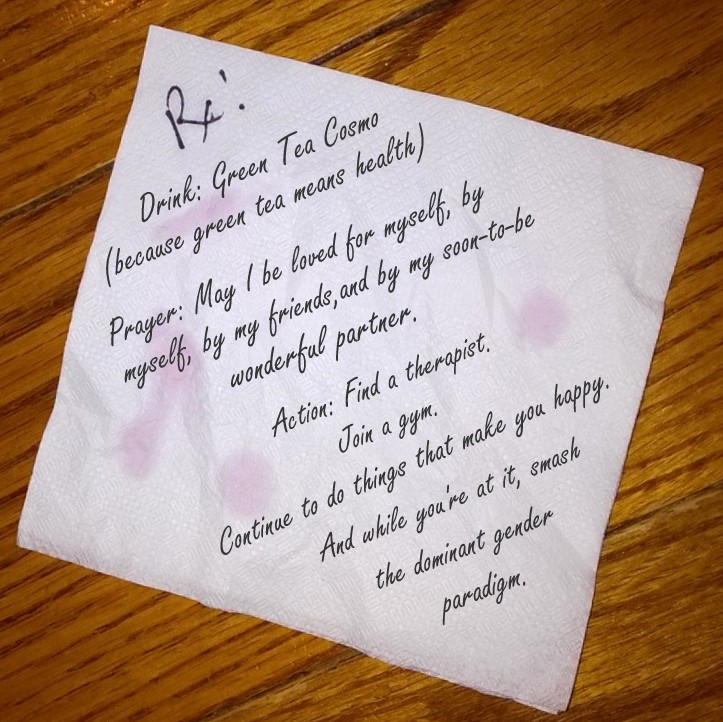 Rx:
Drink: Green Tea Cosmo
(because green tea means health)
Prayer: May I be loved for myself, by
myself, by my friends,and by my soon-to-be
wonderful partner.
Action: Find a therapist.
Join a gym.
Continue to do things that make you happy.
And while you're at it, smash
the dominant gender
paradigm.